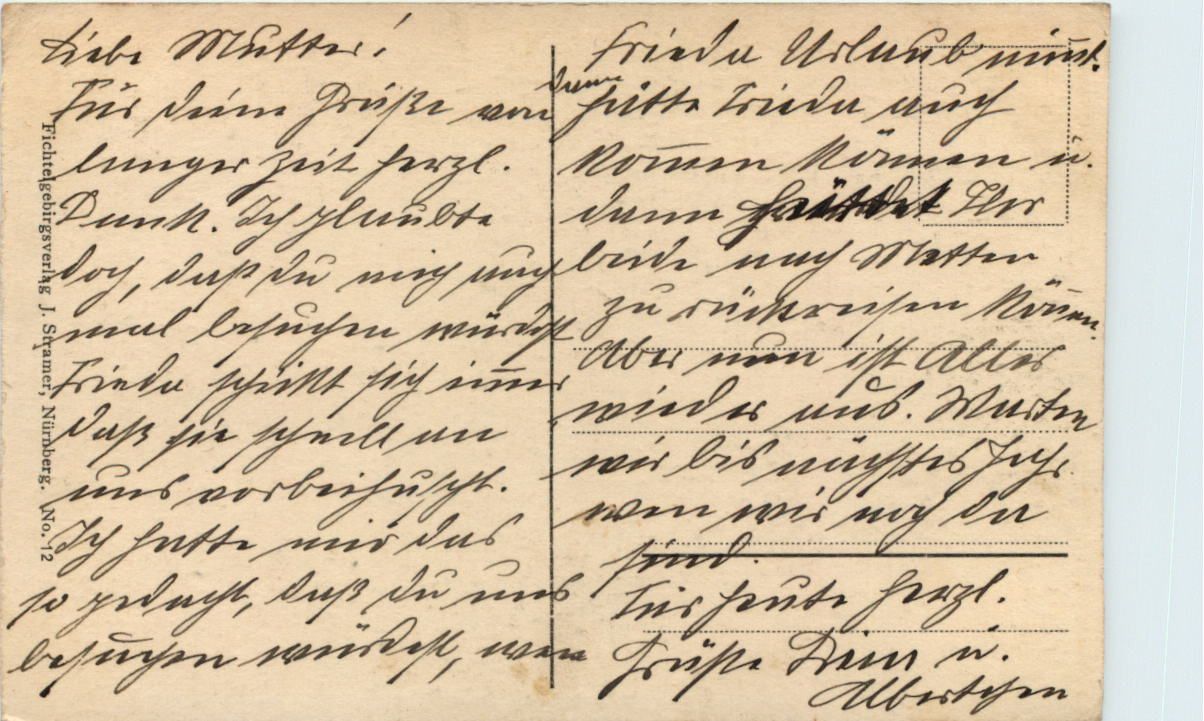 Liebe Mutter!
Für deine Grüße von
langer Zeit herzl.
Dank. Ich glaubte
doch, daß du mich auch
mal besuchen würdest
Frieda schikt sich im̄er
daß sie schnell an
uns vorbeihuscht.
Ich hatte mir das
so gedacht, daß du uns
besuchen würdest, wen
Frieda Urlaub nim̄t.
dann
hätte Frieda auch
kom̄en können u.
dann hättet Ihr
beide nach Metten
zurückreisen kön̄en.
Aber nun ist Alles
wieder aus. Warten
wir bis nächstes Jahr
wen wir noch da
sind.
Für heute herzl.
Grüße Dein u.
Albertchen
Fichtelgebirgsverlag J. Stramer, Nürnberg. No. 12